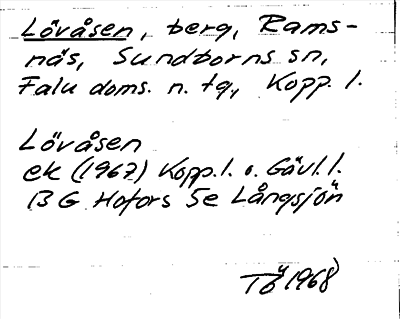 Lövåsen, berg, Rams-
näs, Sundborns sn,
Falu doms. n. tg., Kopp. l.
Lövåsen
ek (1967) Kopp. l. o. Gävl. l.
13 G Hofors 5e Långsjön
Tö 1968